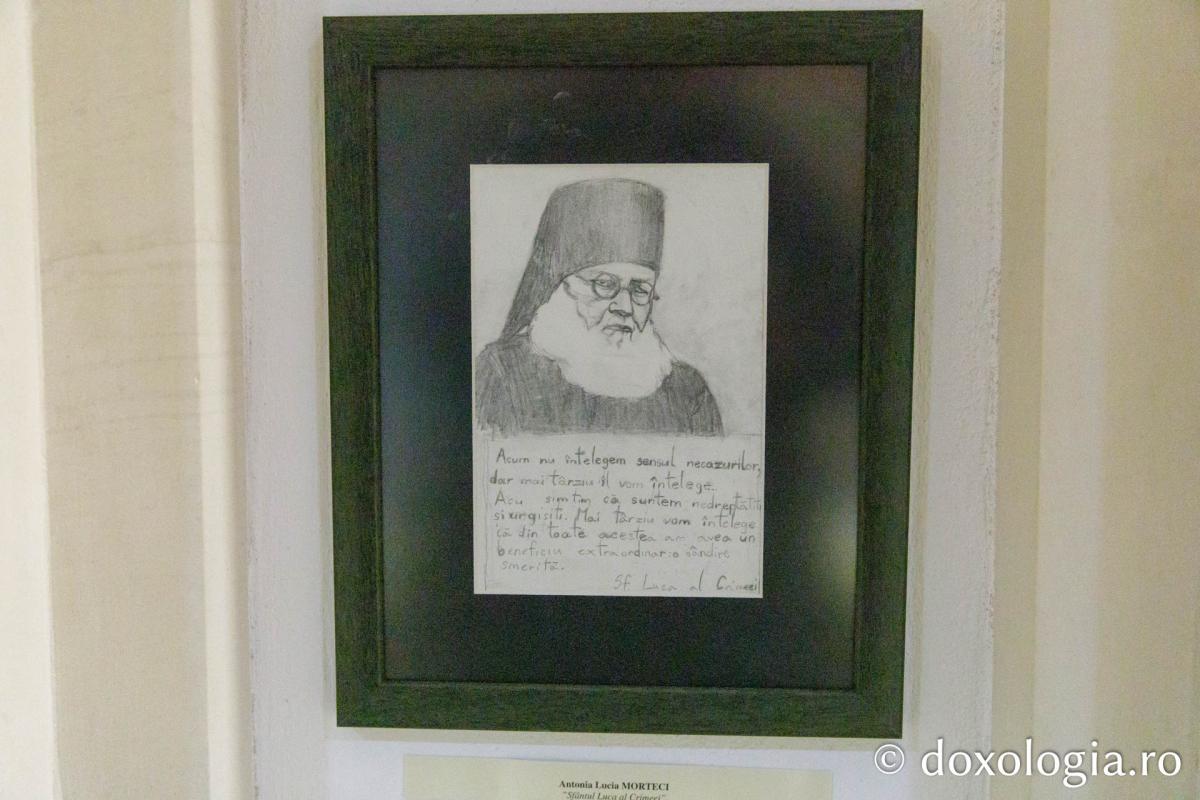 Acum nu înțelegem sensul necazurilor,
dar mai târziu îl vom întelege.
Acu simtim că suntem nedreptătiți
si urgisiti. Mai târziu vom întelege
că din toate acestea am avea un
beneficiu extraordinar: o gândire
smerită.
Sf. Luca al Crimeei
Antonia Lucia MORTECI
"Sfântul Luca al Crimeei"
© doxologia.ro